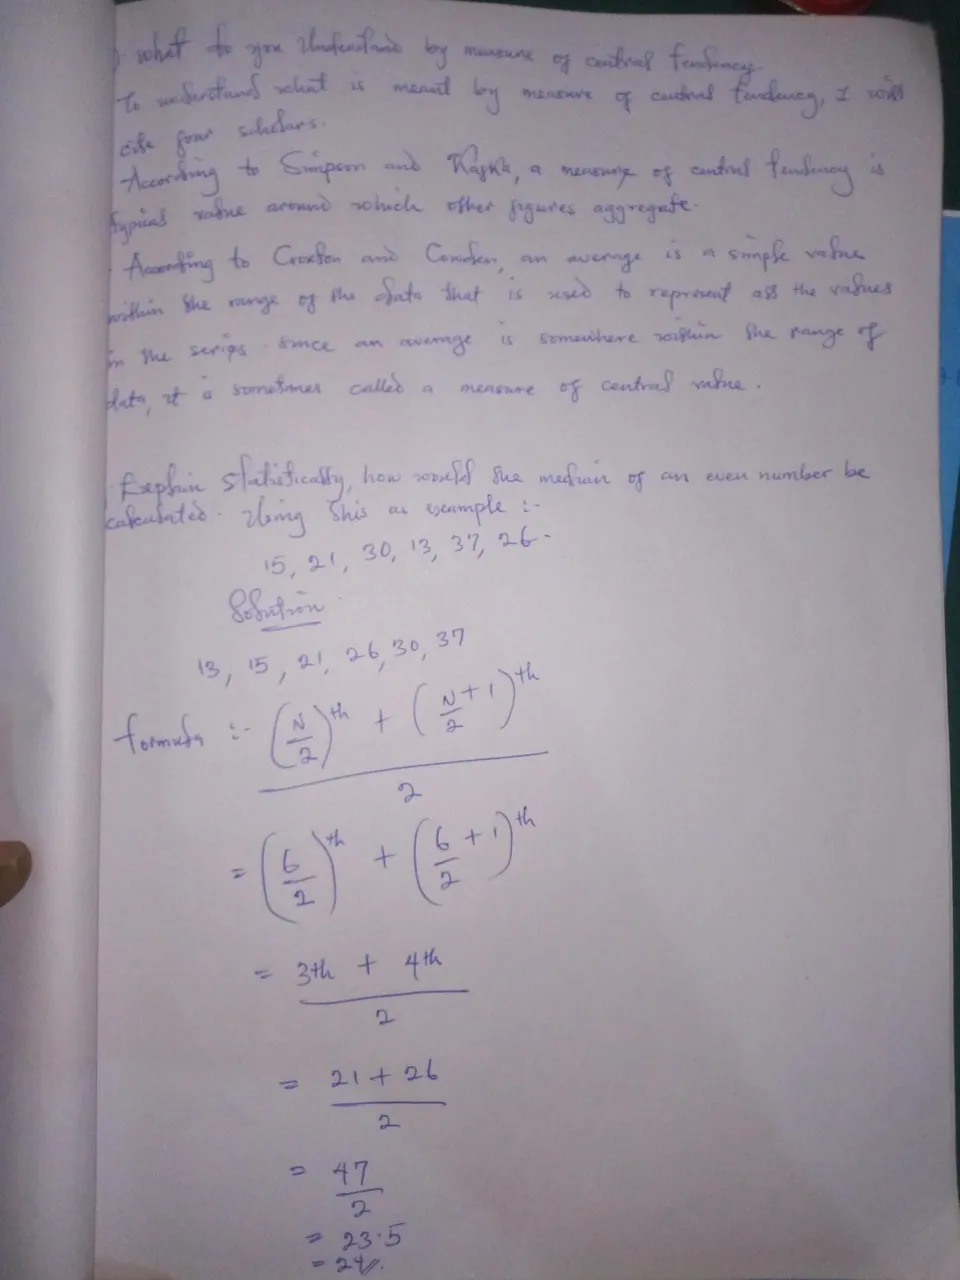 ) what do you Understand by measure of central tendency.
To understand what is meant by measure of central tendency, I will
cite four scholars.
According to Simpson and Kafka, a measure of central tendency is
typical value around which other figures aggregate.
According to Croxton and Cowden, an average is a simple value
within the range of the data that is used to represent all the values
in the series. Since an average is somewhere within the range of
data, it is sometimes called a measure of central value.
Explain Statistically, how would the median of an even number be
calculated. Using this as example :-
15, 21, 30, 13, 37, 26.
Solution
13, 15, 21, 26, 30, 37
formula :- (N/2)th + (N/2 + 1)th
2
= (6/2)th + (6/2 + 1)th
= 3th + 4th
2
= 21 + 26
2
= 47
2
= 23.5
= 24//.